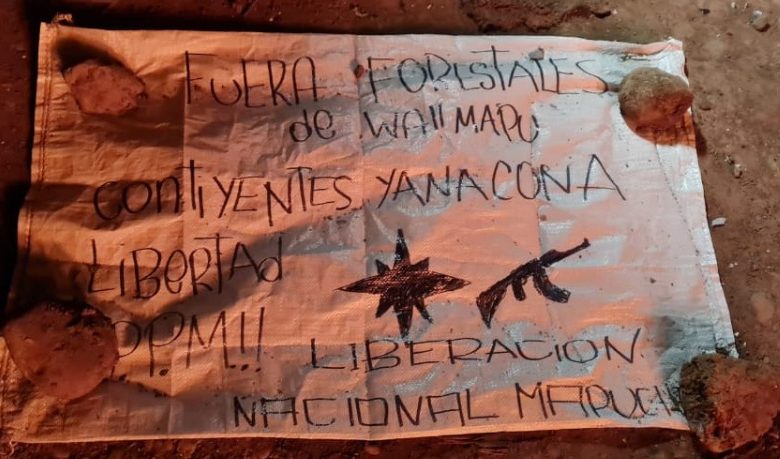 FUERA FORESTALES
de WAllMAPU
CONTIYENTES YANACONA
LIBERTAd
P.P.M!!
LIBERACION
NACIONAL